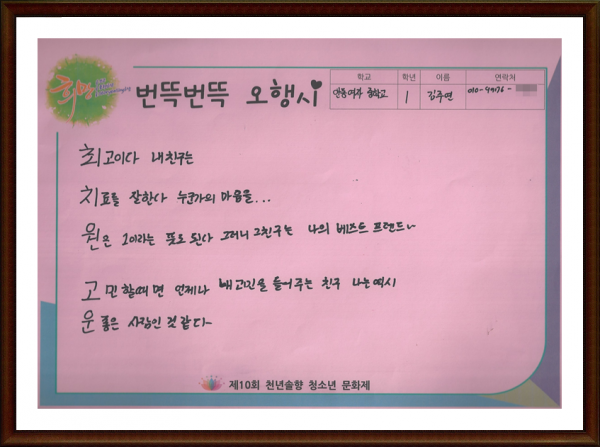 희망
번뜩번뜩 오행시
학교 학년 이름 연락처
안동여자 중학교 1 김주연 010-
최고이다 내친구는
치료를 잘한다 누군가의 마음을...
원은 1이라는 뜻도 된다 그러니 그친구는 나의 베스트 프렌드~
고민할때면 언제나 내고민을 들어주는 친구 나는역시
운좋은 사람인 것 같다~
제10회 천년솔향 청소년 문화제